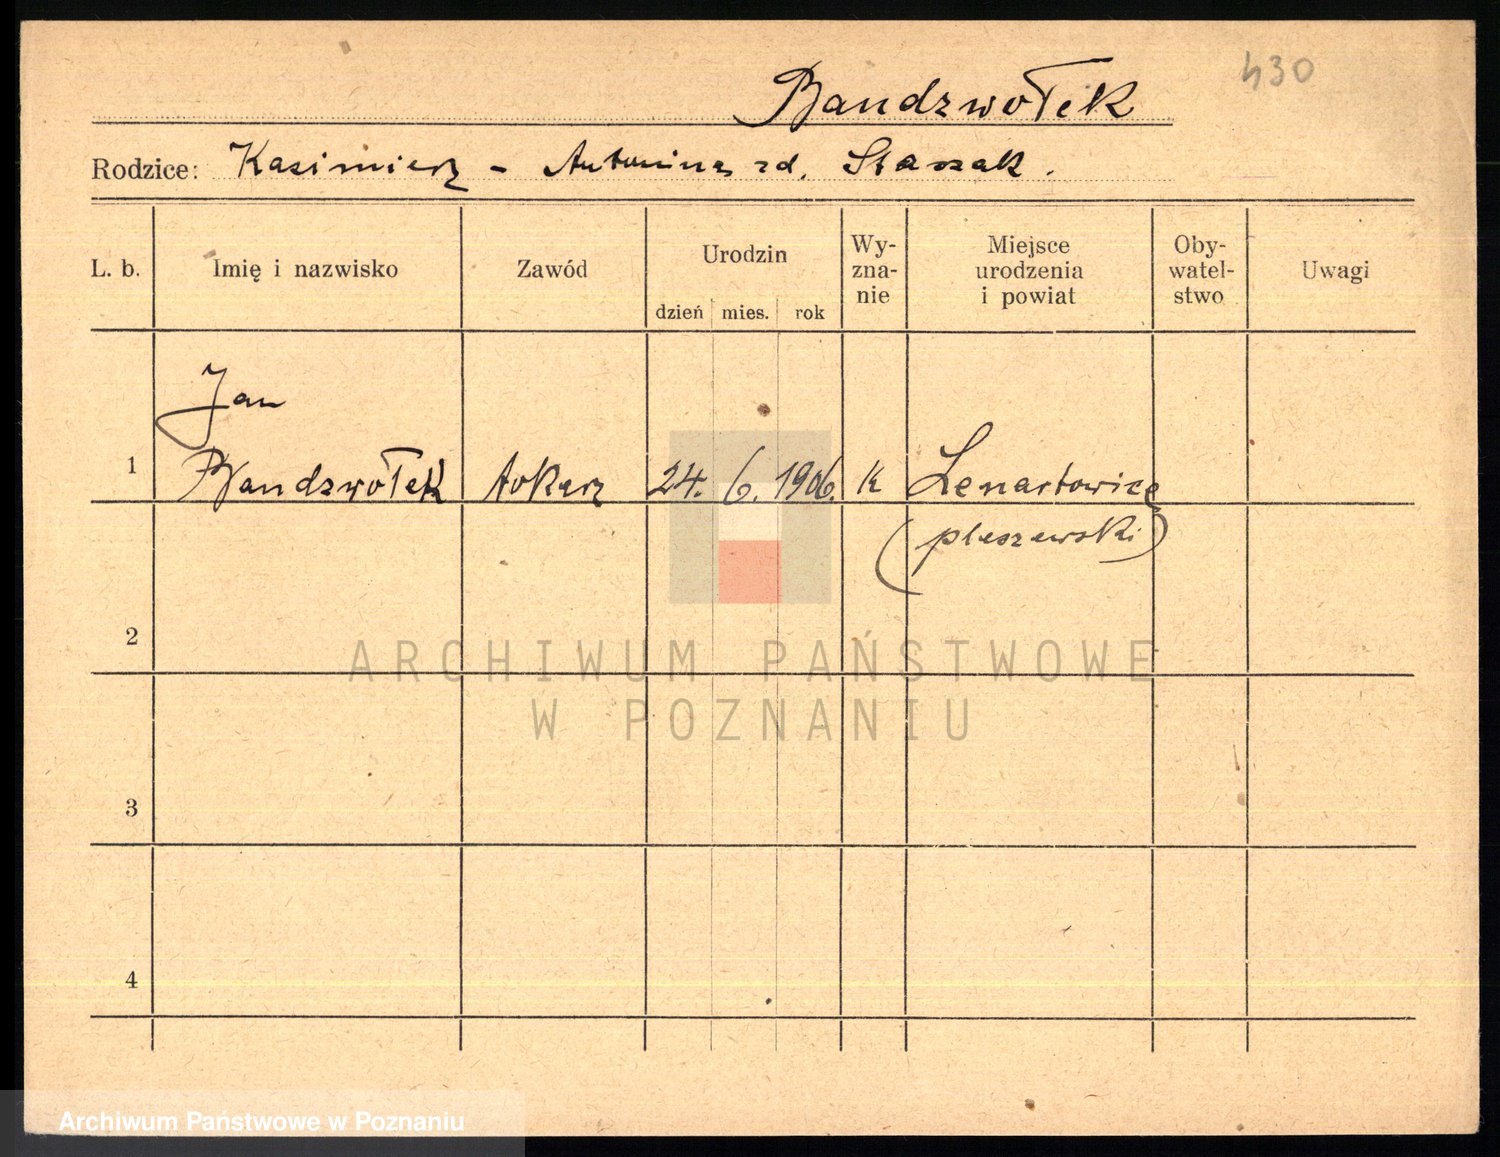 430
Bandzwołek
Rodzice: Kazimierz - Antonina zd. Staszak.
L. b. Imię i nazwisko Zawód Urodzin dzień mies. rok Wy-zna-nie Miejsce urodzenia i powiat Oby-watel-stwo Uwagi
Jan
1 Bandzwołek tokarz 24. 6. 1906. k Lenartowice
(pleszewski)
2
ARCHIWUM PAŃSTWOWE
W POZNANIU
3
4
Archiwum Państwowe w Poznaniu